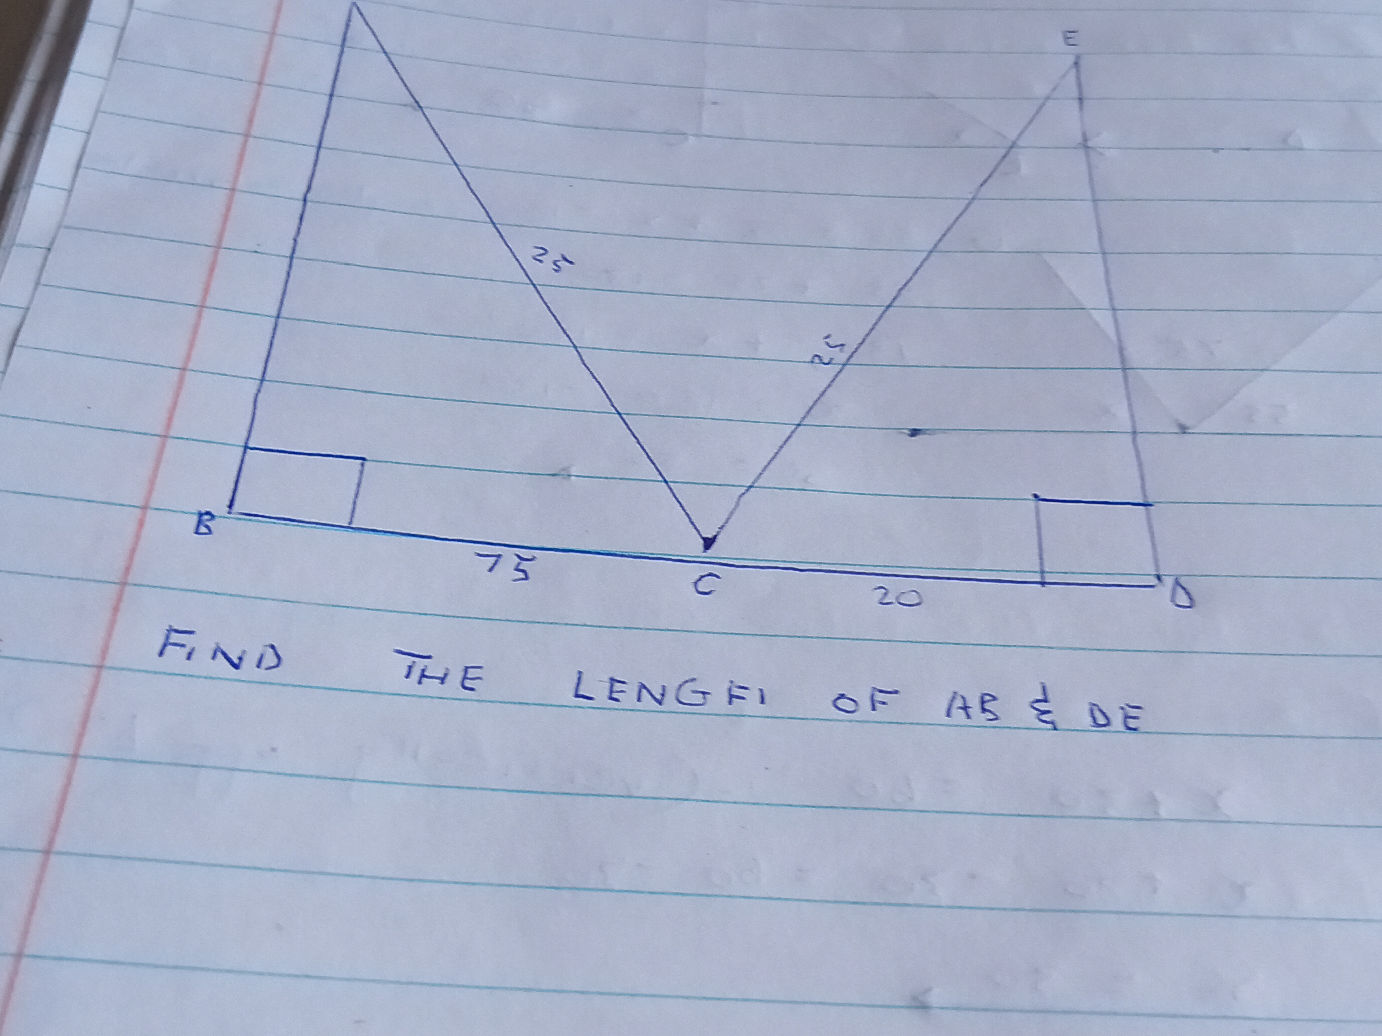 E
25
25
B
75
C
20
D
FIND THE LENGFI OF AB & DE